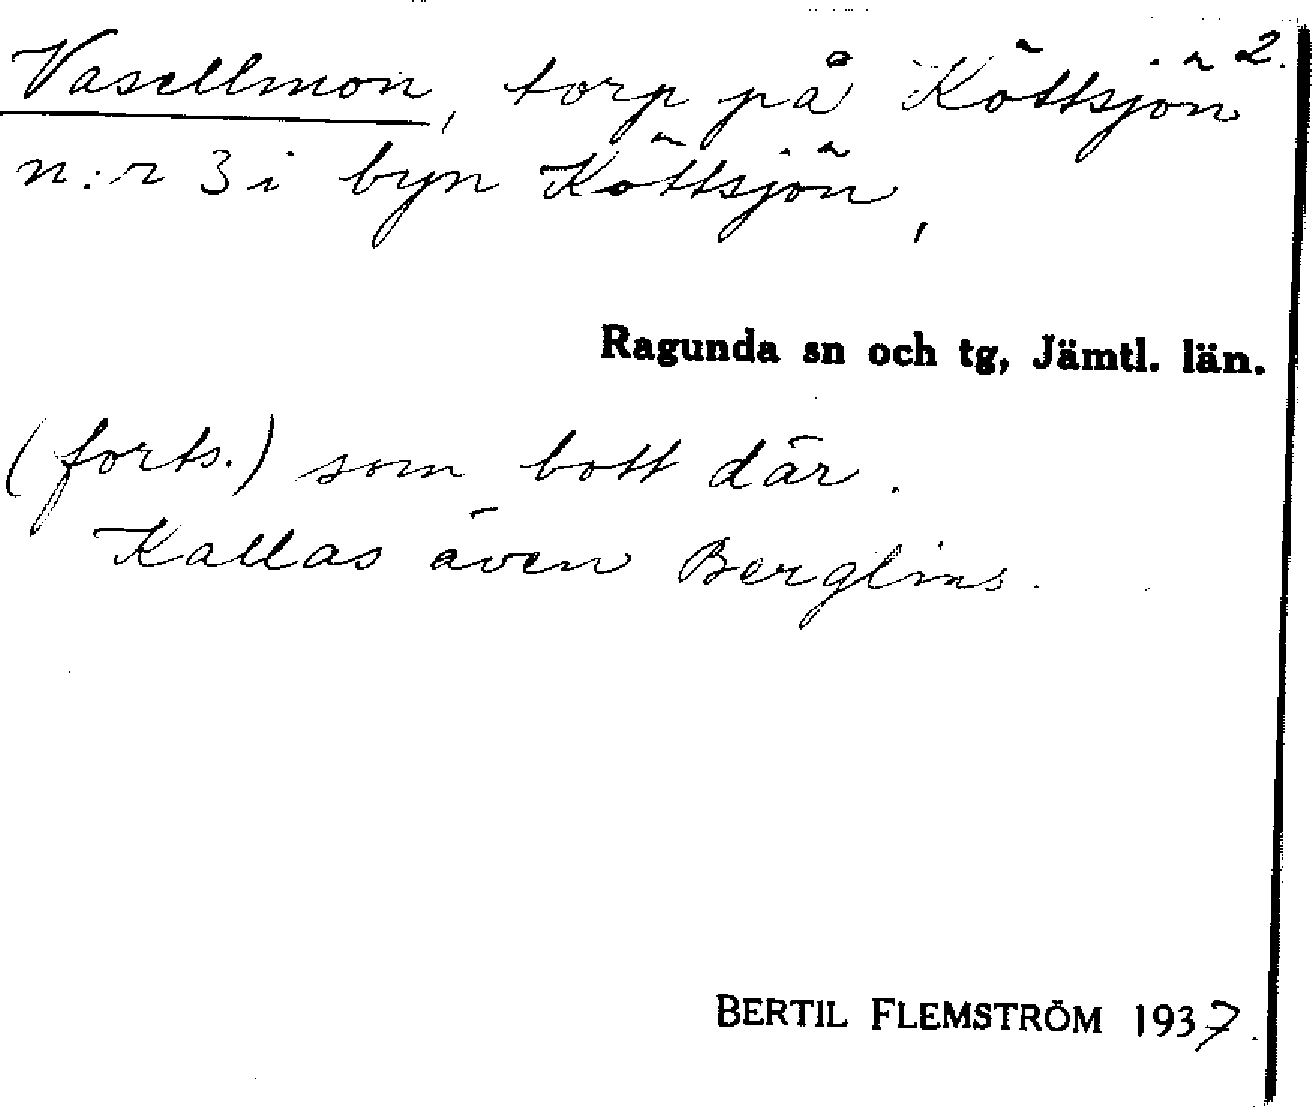 2.
Vasellmon, torp på Köttsjön
n:r 3 i byn Köttsjön,
Ragunda sn och tg, Jämtl. län.
(forts.) som bott där.
Kallas även Berglins.
BERTIL FLEMSTRÖM 1937.